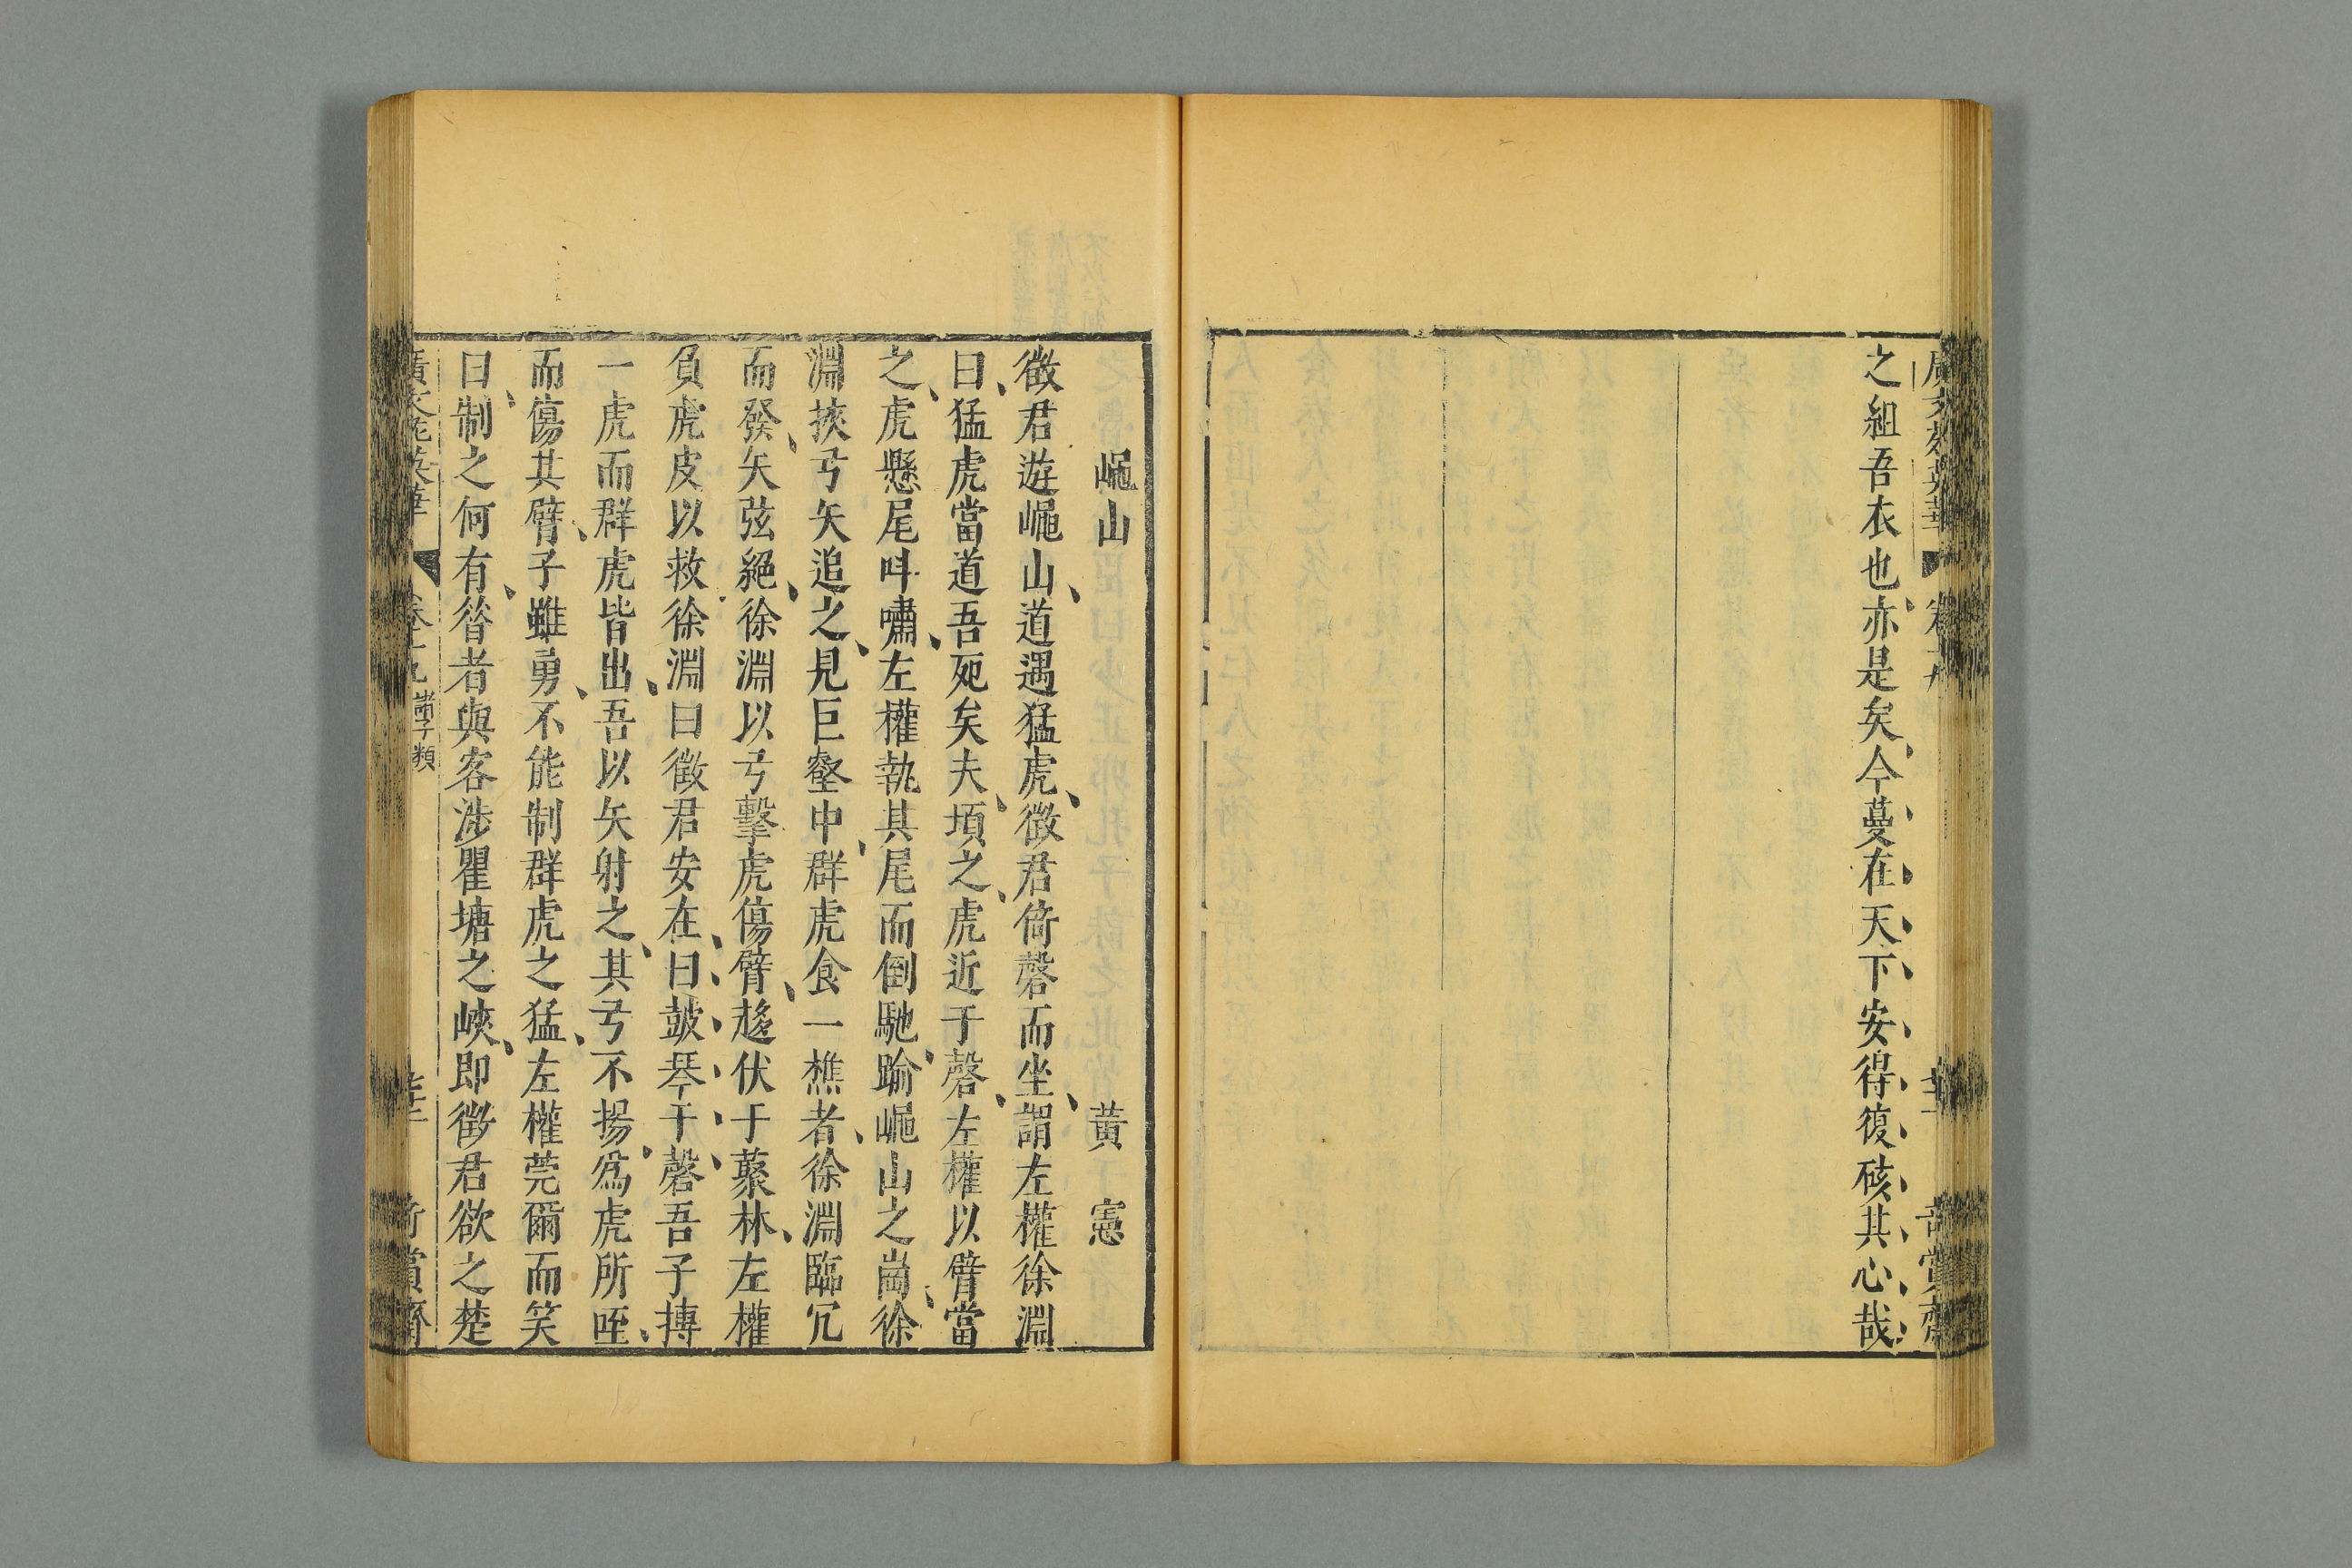 之組吾衣也亦是矣今蔓在天下安得復核其心哉
𪩘山　黃憲
徵君遊𪩘山道遇猛虎徵君倚磬而坐謂左權徐淵
曰猛虎當道吾死矣夫頃之虎近于磬左權以臂當
之虎懸尾呌嘯左權執其尾而倒馳踰𪩘山之崗徐
淵挾弓矢追之見巨壑中群虎食一樵者徐淵臨冗
而發矢弦絕徐淵以弓擊虎傷臂趍伏于蘩林左權
負虎皮以救徐淵曰徵君安在曰鼓琴于磬吾子摶
一虎而群虎皆出吾以矢射之其弓不揚爲虎所咥
而傷其臂子雖勇不能制群虎之猛左權莞爾而笑
曰制之何有昝者與客涉瞿塘之峽即徵君欲之楚
廣文苑英華　卷十九　諸子類　奇賞齋